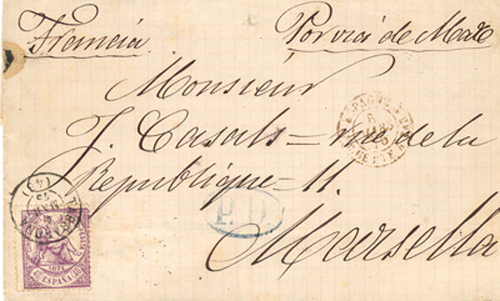 Francia Por via de Mar
Monsieur
J. Casals = rue de la
Republique = 11.
P.D.
Marsella
TARRAGONA
ESPAÑA